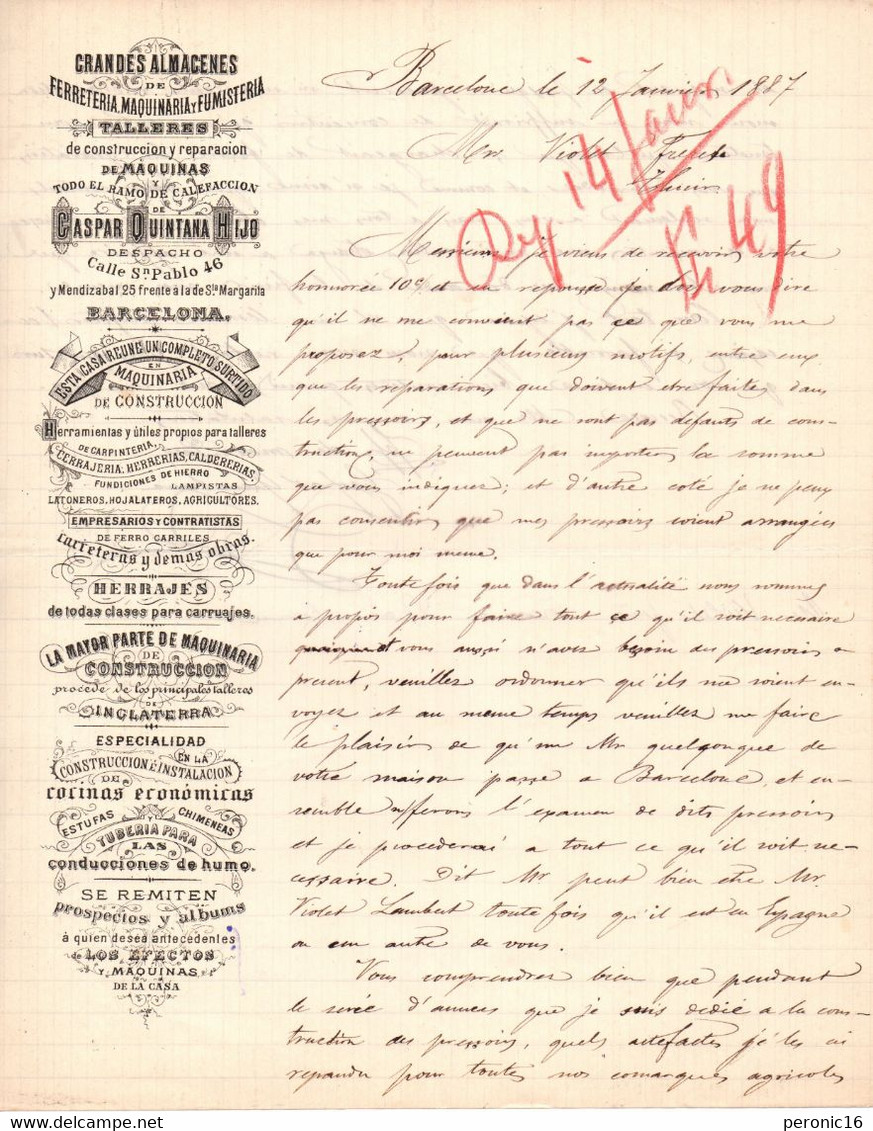 GRANDES ALMACENES
DE
FERRETERIA, MAQUINARIA Y FUMISTERIA
TALLERES
de construccion y reparacion
DE MAQUINAS
Y
TODO EL RAMO DE CALEFACCION
DE
GASPAR QUINTANA HIJO
DESPACHO
Calle Sn. Pablo 46
y Mendizabal 25 frente á la de Sta Margarita
BARCELONA.
ESTA CASA REUNE UN COMPLETO SURTIDO
EN
MAQUINARIA
DE CONSTRUCCION
Herramientas y útiles propios para talleres
DE CARPINTERIA,
CERRAJERIA, HERRERIAS, CALDERERIAS,
FUNDICIONES DE HIERRO
LAMPISTAS
LATONEROS, HOJALATEROS, AGRICULTORES.
EMPRESARIOS Y CONTRATISTAS
DE FERRO CARRILES
carreteras y demas obras.
HERRAJES
de todas clases para carruajes.
LA MAYOR PARTE DE MAQUINARIA
DE
CONSTRUCCION
procede de los principales talleres
DE
INGLATERRA
ESPECIALIDAD
EN LA
CONSTRUCCION É INSTALACION
DE
cocinas económicas
ESTUFAS Y CHIMENEAS
TUBERIA PARA
LAS
conducciones de humo.
SE REMITEN
prospecios y albums
á quien desea antecedentes
de LOS EFECTOS
Y MAQUINAS
DE LA CASA
Barcelone le 12 Janvier 1887
Mrs. Violet Frères
Thuir
14 Janv.
49
Messieurs je viens de recevoir votre
honnorée 10c/ et en reponsse je dois vous dire
qu'il ne me convient pas çe que vous me
proposez, pour plusieurs motifs, entre eux
que les reparations que doivent etre faites dans
les pressoirs, et que ne sont pas defauts de cons-
truction, ne peuvent pas importer la somme
que vous indiquez; et d'autre coté je ne peux
pas consentir que mes pressoirs soient arrangées
que pour moi meme.
Toute fois que dans l'actualité nous sommes
a propos pour faire tout çe qu'il soit necesaire
et vous aussi n'avez besoin des pressoirs a
present, veuillez ordonner qu'ils me soient en-
voyez et au meme temps veuillez me faire
le plaisir de qu'un Mr quelqonque de
votre maison passe a Barcelone, et en-
semble n/ferons l'examen de dits pressoirs
et je procederai a tout ce qu'il soit ne-
cessaire. Dit Mr peut bien etre Mr.
Violet Lambert toute fois qu'il est en Espagne
ou un autre de vous.
Vous comprendrez bien que pendant
le serée d'annees que je suis dedié a la cons-
truction des pressoirs, quels artefactes je les ai
repandu pour toutes nos comarques agricoles